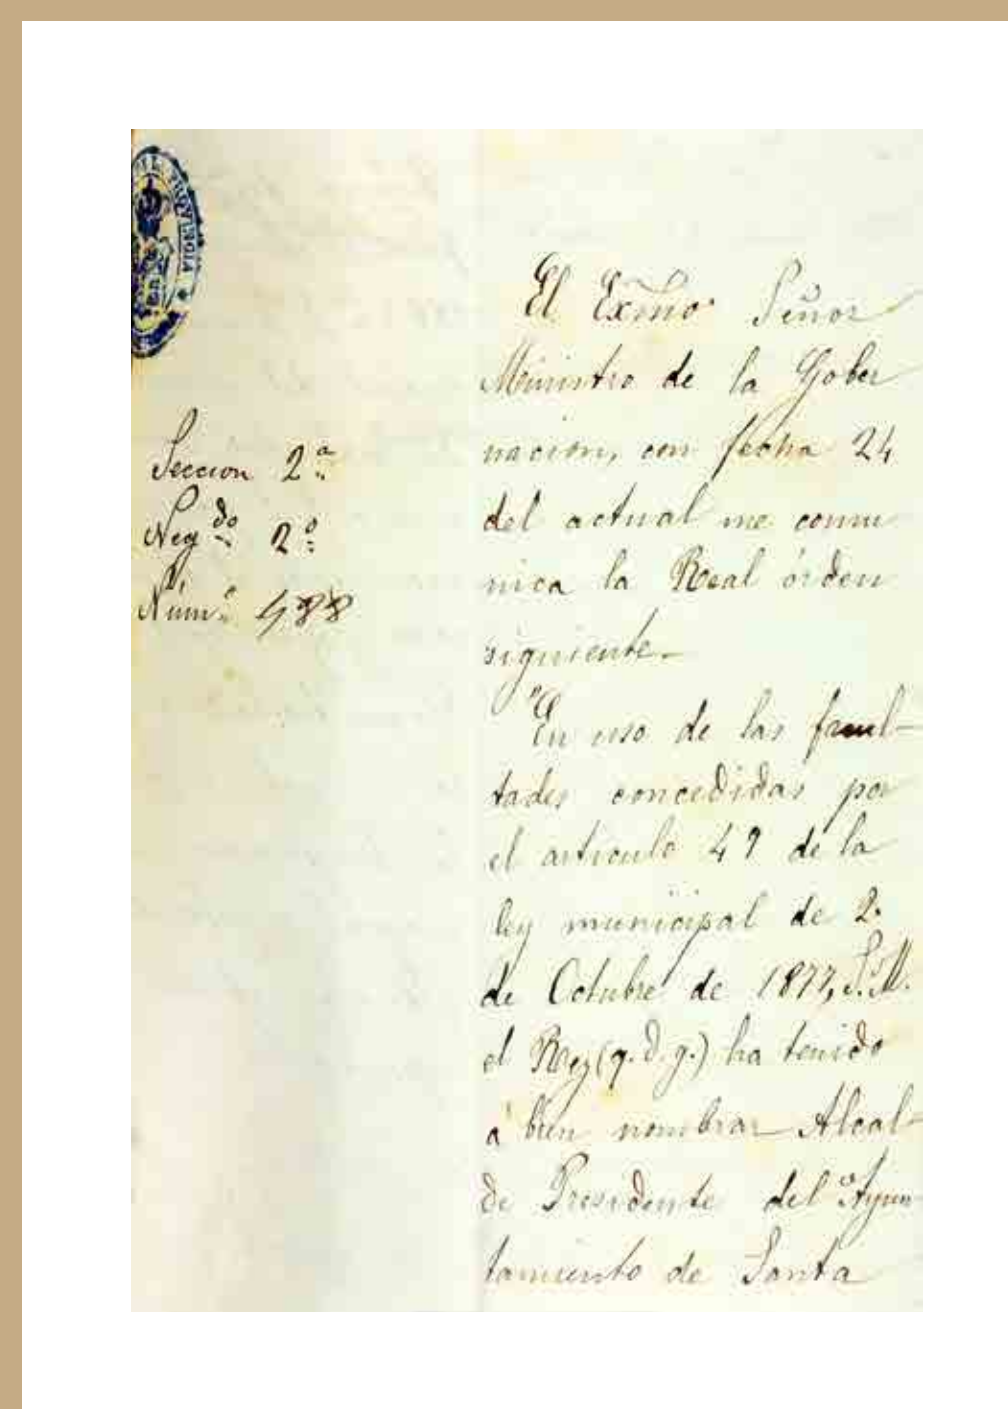 PROVINCIA
Seccion 2ª
Neg.do 2º
Núm.º 488
El Exmo Señor
Ministro de la Gober
nacion, con fecha 24
del actual me comu
nica la Real órden
siguiente_
"En uso de las facul-
tades concedidas por
el articulo 49 de la
ley municipal de 2.
de Octubre de 1877, S. M.
el Rey (q. d. g.) ha tenido
á bien nombrar Alcal-
de Presidente del Ayun-
tamiento de Santa